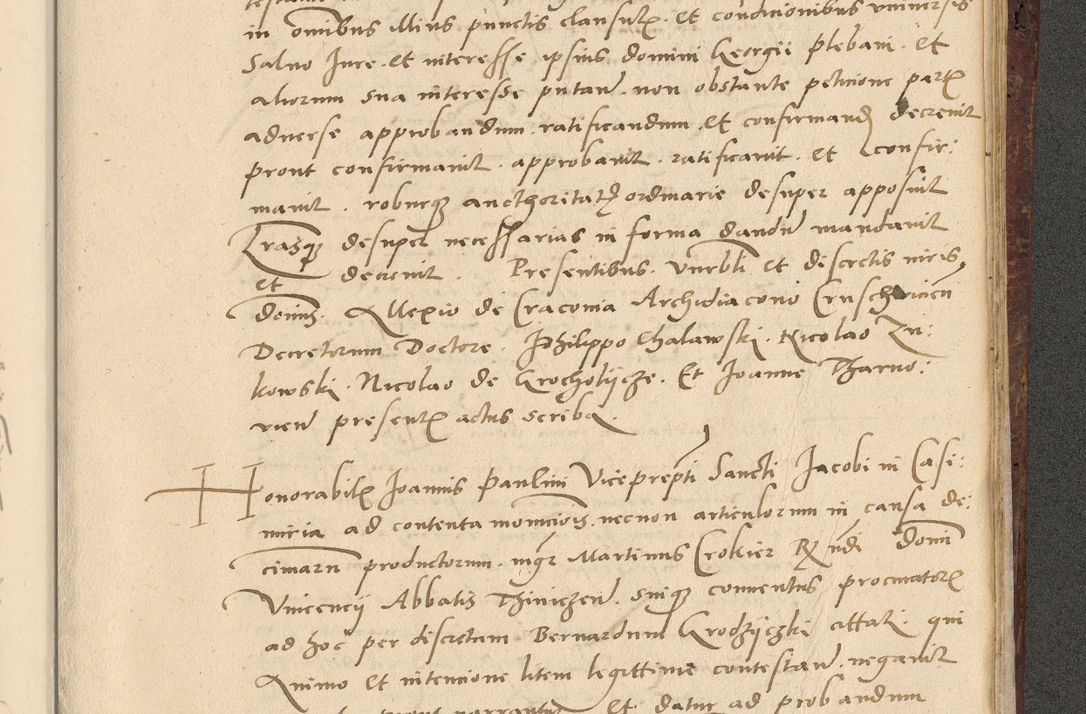 in omibus illius punctis clausulis et conditionibus universis
Salvo Jure et interesse ipsius domini Georgii plebani et
aliorum sua interesse putan. non obstante petitione partis
adverse approbandum ratificandum et confirmand decrevit
prout confirmavit. approbavit. ratificavit. et confir:
mavit. roburque aucthoritatis ordinarie desuper apposuit
Lrasque desuper necessarias in forma dandum mandavit
et decrevit. Presentibus. Venrbli et discretis viris
domis. Allexio de Cracovia Archidiacono Cruschvicien
Decretorum Doctore. Philippo Chalawski. Nicolao Zu:
kowski. Nicolao de Grocholijcze. Et Joanne Tharno:
vien presentis actus scriba.
Honorabilis Joannis Paulini Viceprepti Sancti Jacobi in Casi:
miria ad contenta monicionis. necnon articulorum in causa de:
cimarum productorum. mgr Martinus Crokier Rndi Domi
Vincencij Abbatis Thiniczen. suique conventus procuratoris
ad hoc per discretum Bernardum Grodzijczki cittati. qui
Animo et intencione litem legittime contestan. negavit
narrantur et datur ad probandum